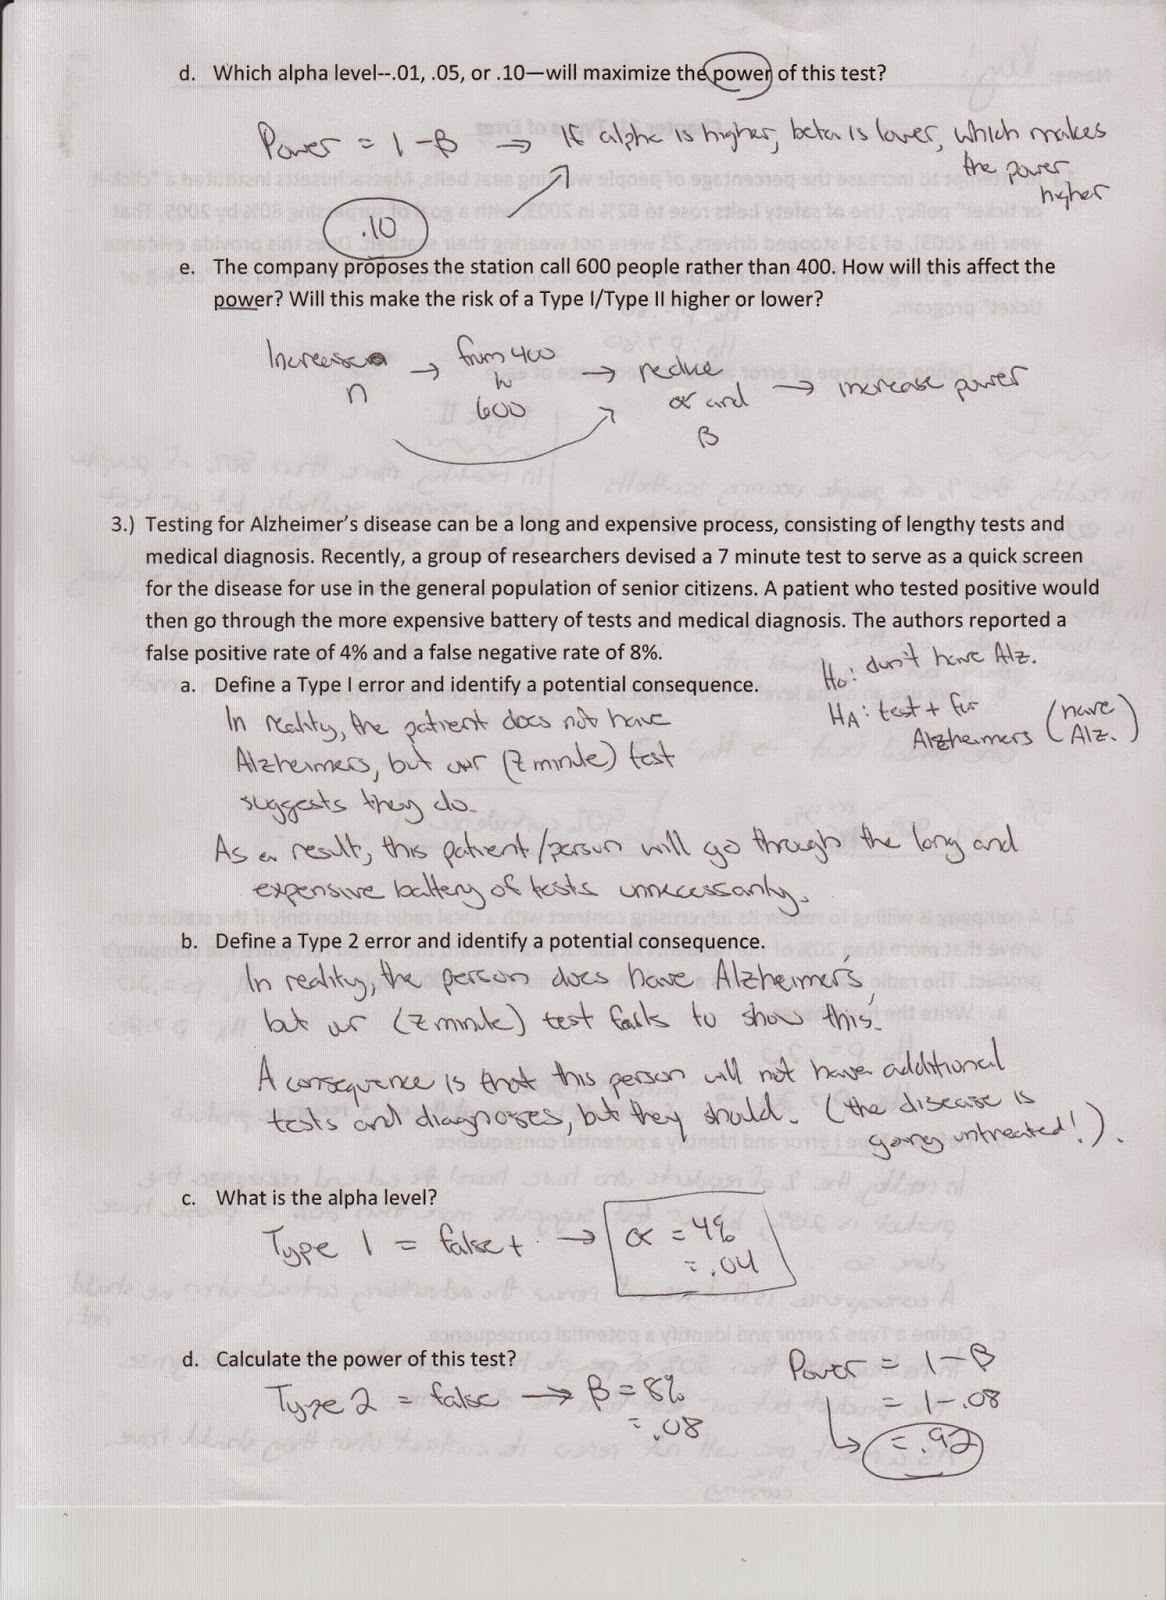 d. Which alpha level--.01, .05, or .10—will maximize the power of this test?
Power = 1 - β → If alpha is higher, beta is lower, which makes
the power
higher
.10
e. The company proposes the station call 600 people rather than 400. How will this affect the
power? Will this make the risk of a Type I/Type II higher or lower?
Increase n → from 400 to 600 → reduce α and β → increase power
3.) Testing for Alzheimer's disease can be a long and expensive process, consisting of lengthy tests and
medical diagnosis. Recently, a group of researchers devised a 7 minute test to serve as a quick screen
for the disease for use in the general population of senior citizens. A patient who tested positive would
then go through the more expensive battery of tests and medical diagnosis. The authors reported a
false positive rate of 4% and a false negative rate of 8%.
H₀: don't have Alz.
a. Define a Type I error and identify a potential consequence.
HA: test + for
Alzheimers (have Alz.)
In reality, the patient does not have
Alzheimers, but our (7 minute) test
suggests they do.
As a result, this patient/person will go through the long and
expensive battery of tests unnecessarily.
b. Define a Type 2 error and identify a potential consequence.
In reality, the person does have Alzheimer's,
but our (7 minute) test fails to show this.
A consequence is that this person will not have additional
tests and diagnoses, but they should. (the disease is
going untreated!).
c. What is the alpha level?
Type 1 = false + → α = 4%
= .04
d. Calculate the power of this test?
Type 2 = false → β = 8%
= .08
Power = 1 - β
= 1 - .08
= .92